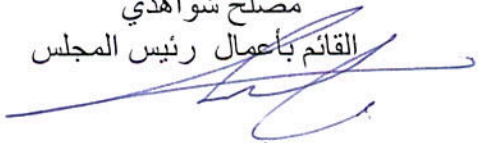 مصلح شواهدي
القائم بأعمال رئيس المجلس